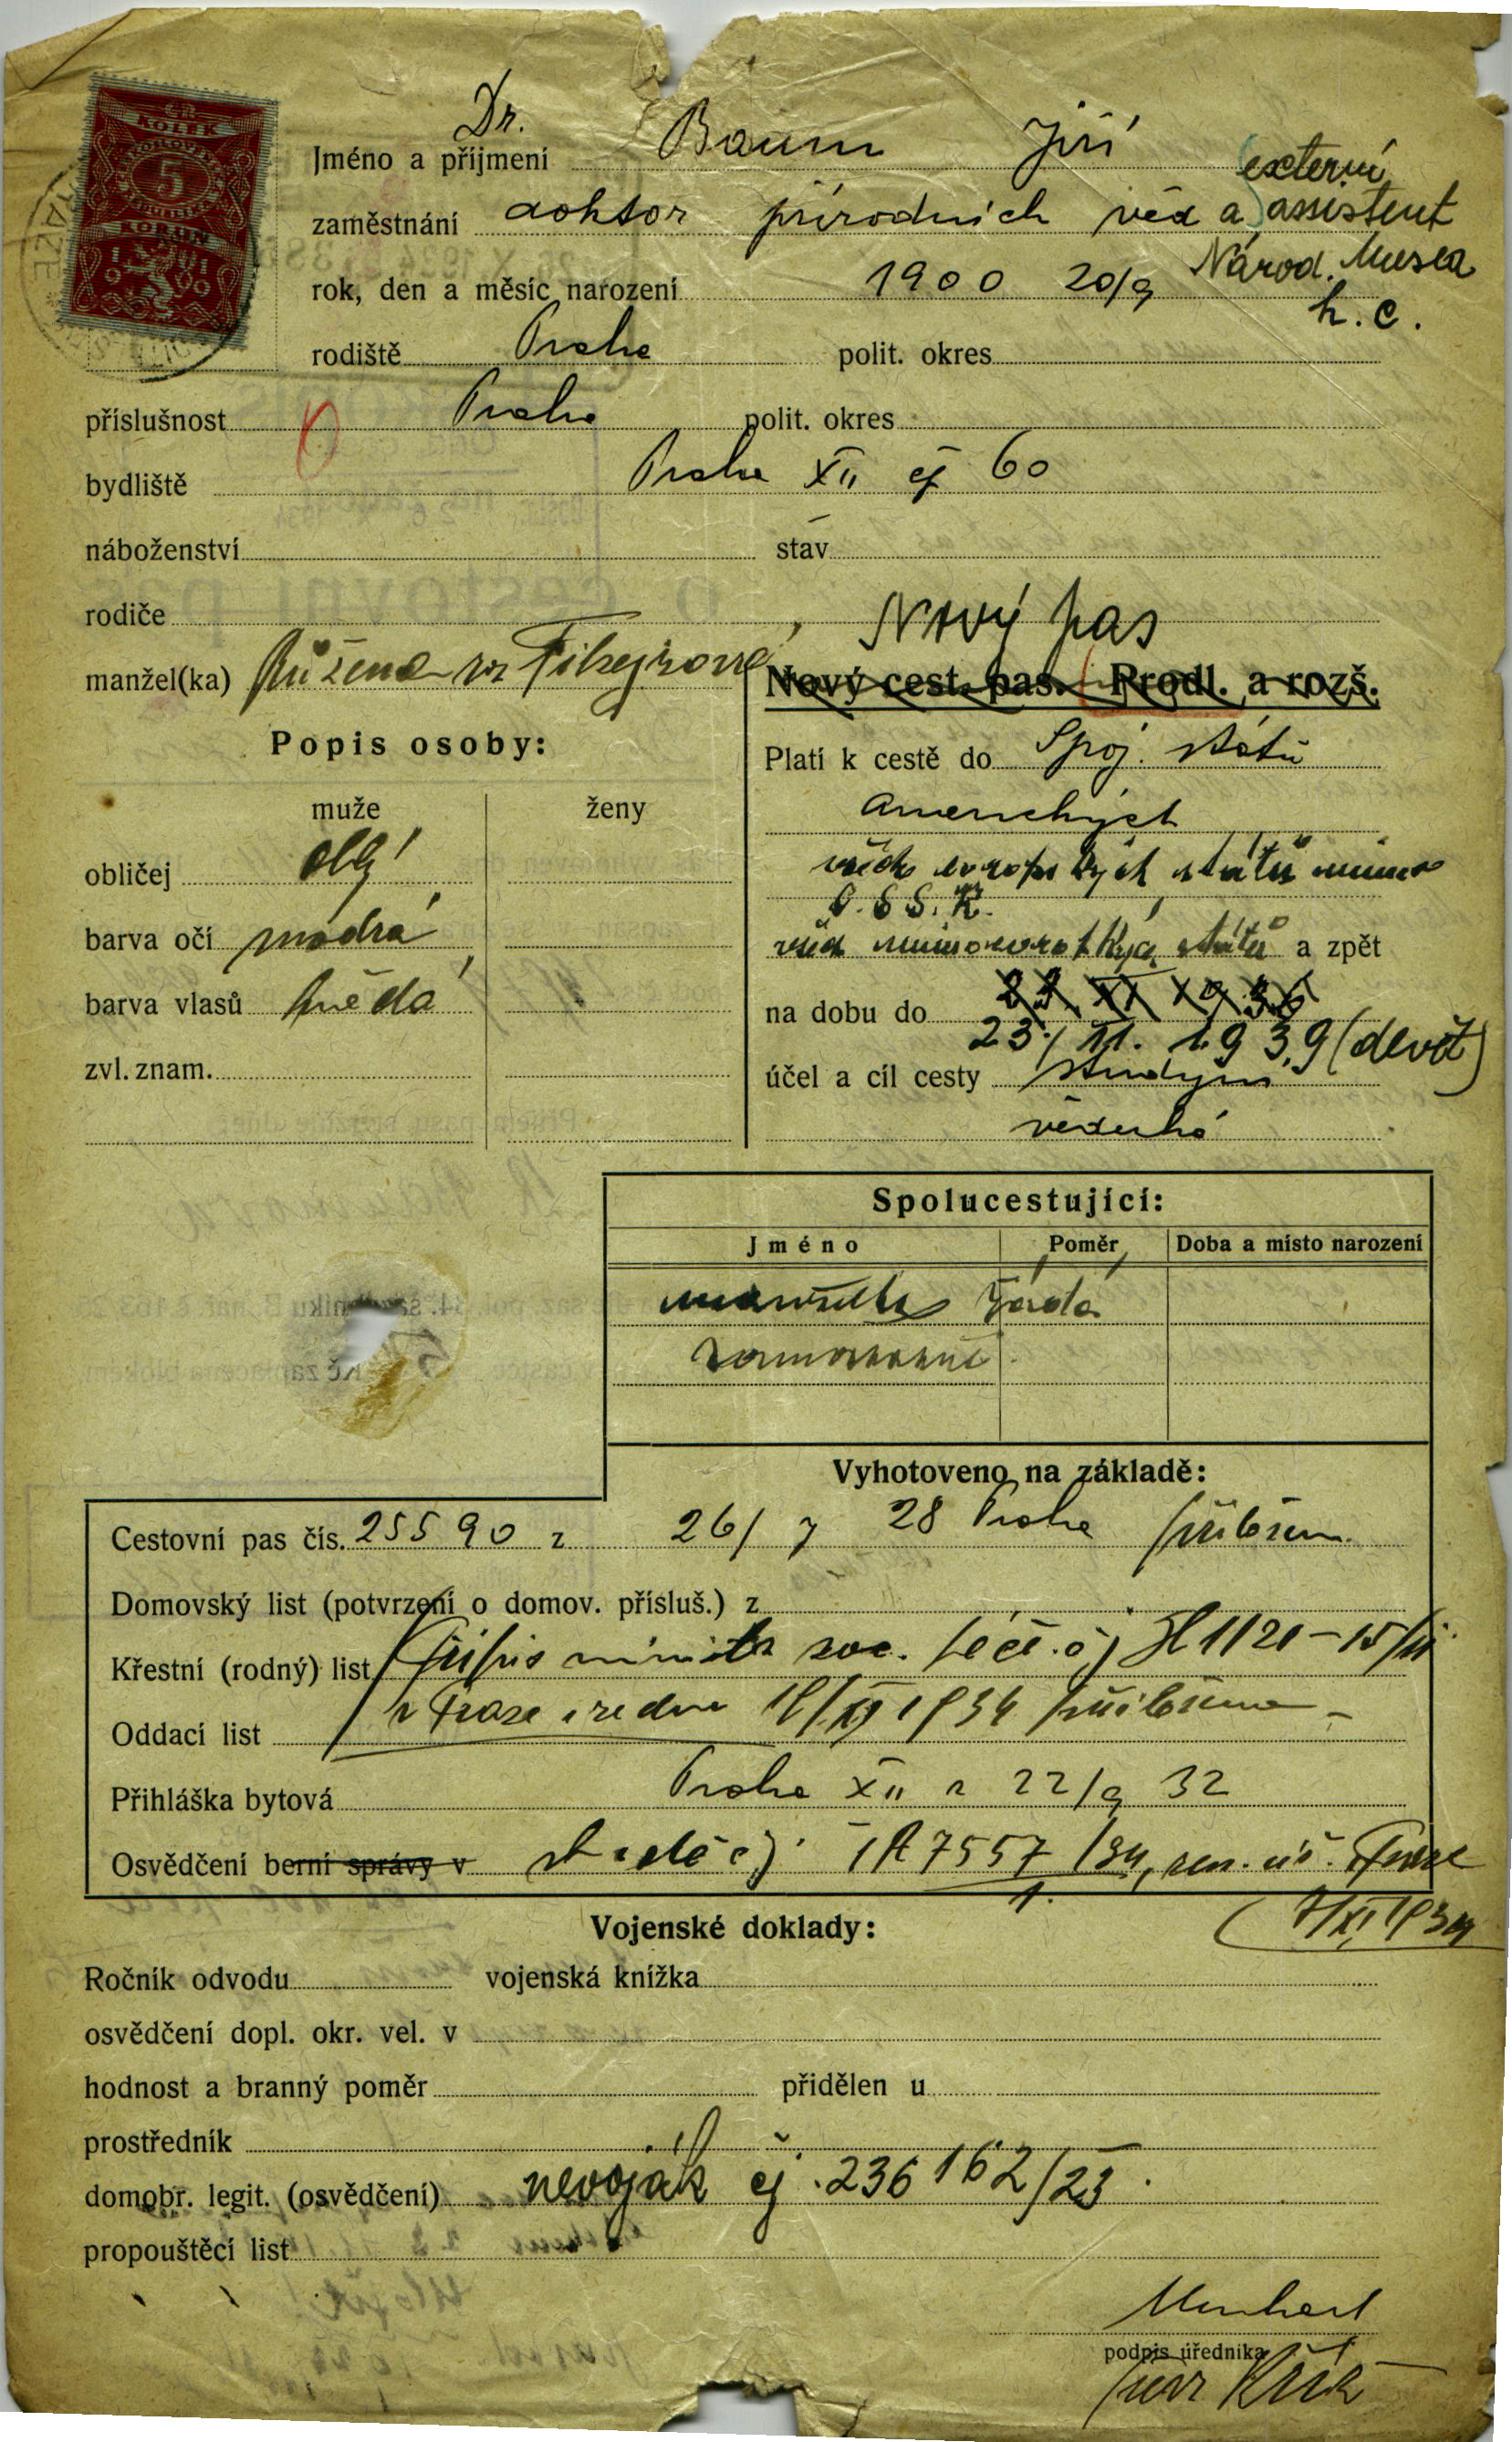 Dr.
Jméno a příjmení Baum Jiří
externí
zaměstnání doktor přírodních věd a assistent
Národ. Musea
h. c.
rok, den a měsíc narození 1900 20/9
rodiště Praha polit. okres
příslušnost Praha polit. okres
bydliště Praha XII čj 60
náboženství stav
rodiče
manžel(ka) Růžena roz
Nový pas
Nový cest. pas. Prodl. a rozš.
Popis osoby:
muže ženy
obličej obl.
barva očí modrá
barva vlasů hnědá
zvl. znam.
Platí k cestě do Spoj. států
Amerických
všech evropských států mimo
S. S. S. R.
všech mimoevropských států a zpět
na dobu do 23 XI 1936
23./11. 1939 (devět)
účel a cíl cesty studijní
vědecká
Spolucestující:
Jméno Poměr Doba a místo narození
manželka žádá
samostatně
Vyhotoveno na základě:
Cestovní pas čís. 25590 z 26/7 28 Praha přiložen.
Domovský list (potvrzení o domov. přísluš.) z
Křestní (rodný) list Přípis minist. soc. péče čj H 1120-15/
Oddací list v Praze ze dne XI 1934 přiložena
Přihláška bytová Praha XII z 22/9 32
Osvědčení berní správy v čj. 7557/34, Praze
XI 1934
Vojenské doklady:
Ročník odvodu vojenská knížka
osvědčení dopl. okr. vel. v
hodnost a branný poměr přidělen u
prostředník
domobr. legit. (osvědčení) nevoják čj. 236162/23.
propouštěcí list
podpis úředníka
5
KORUN
KOLEK